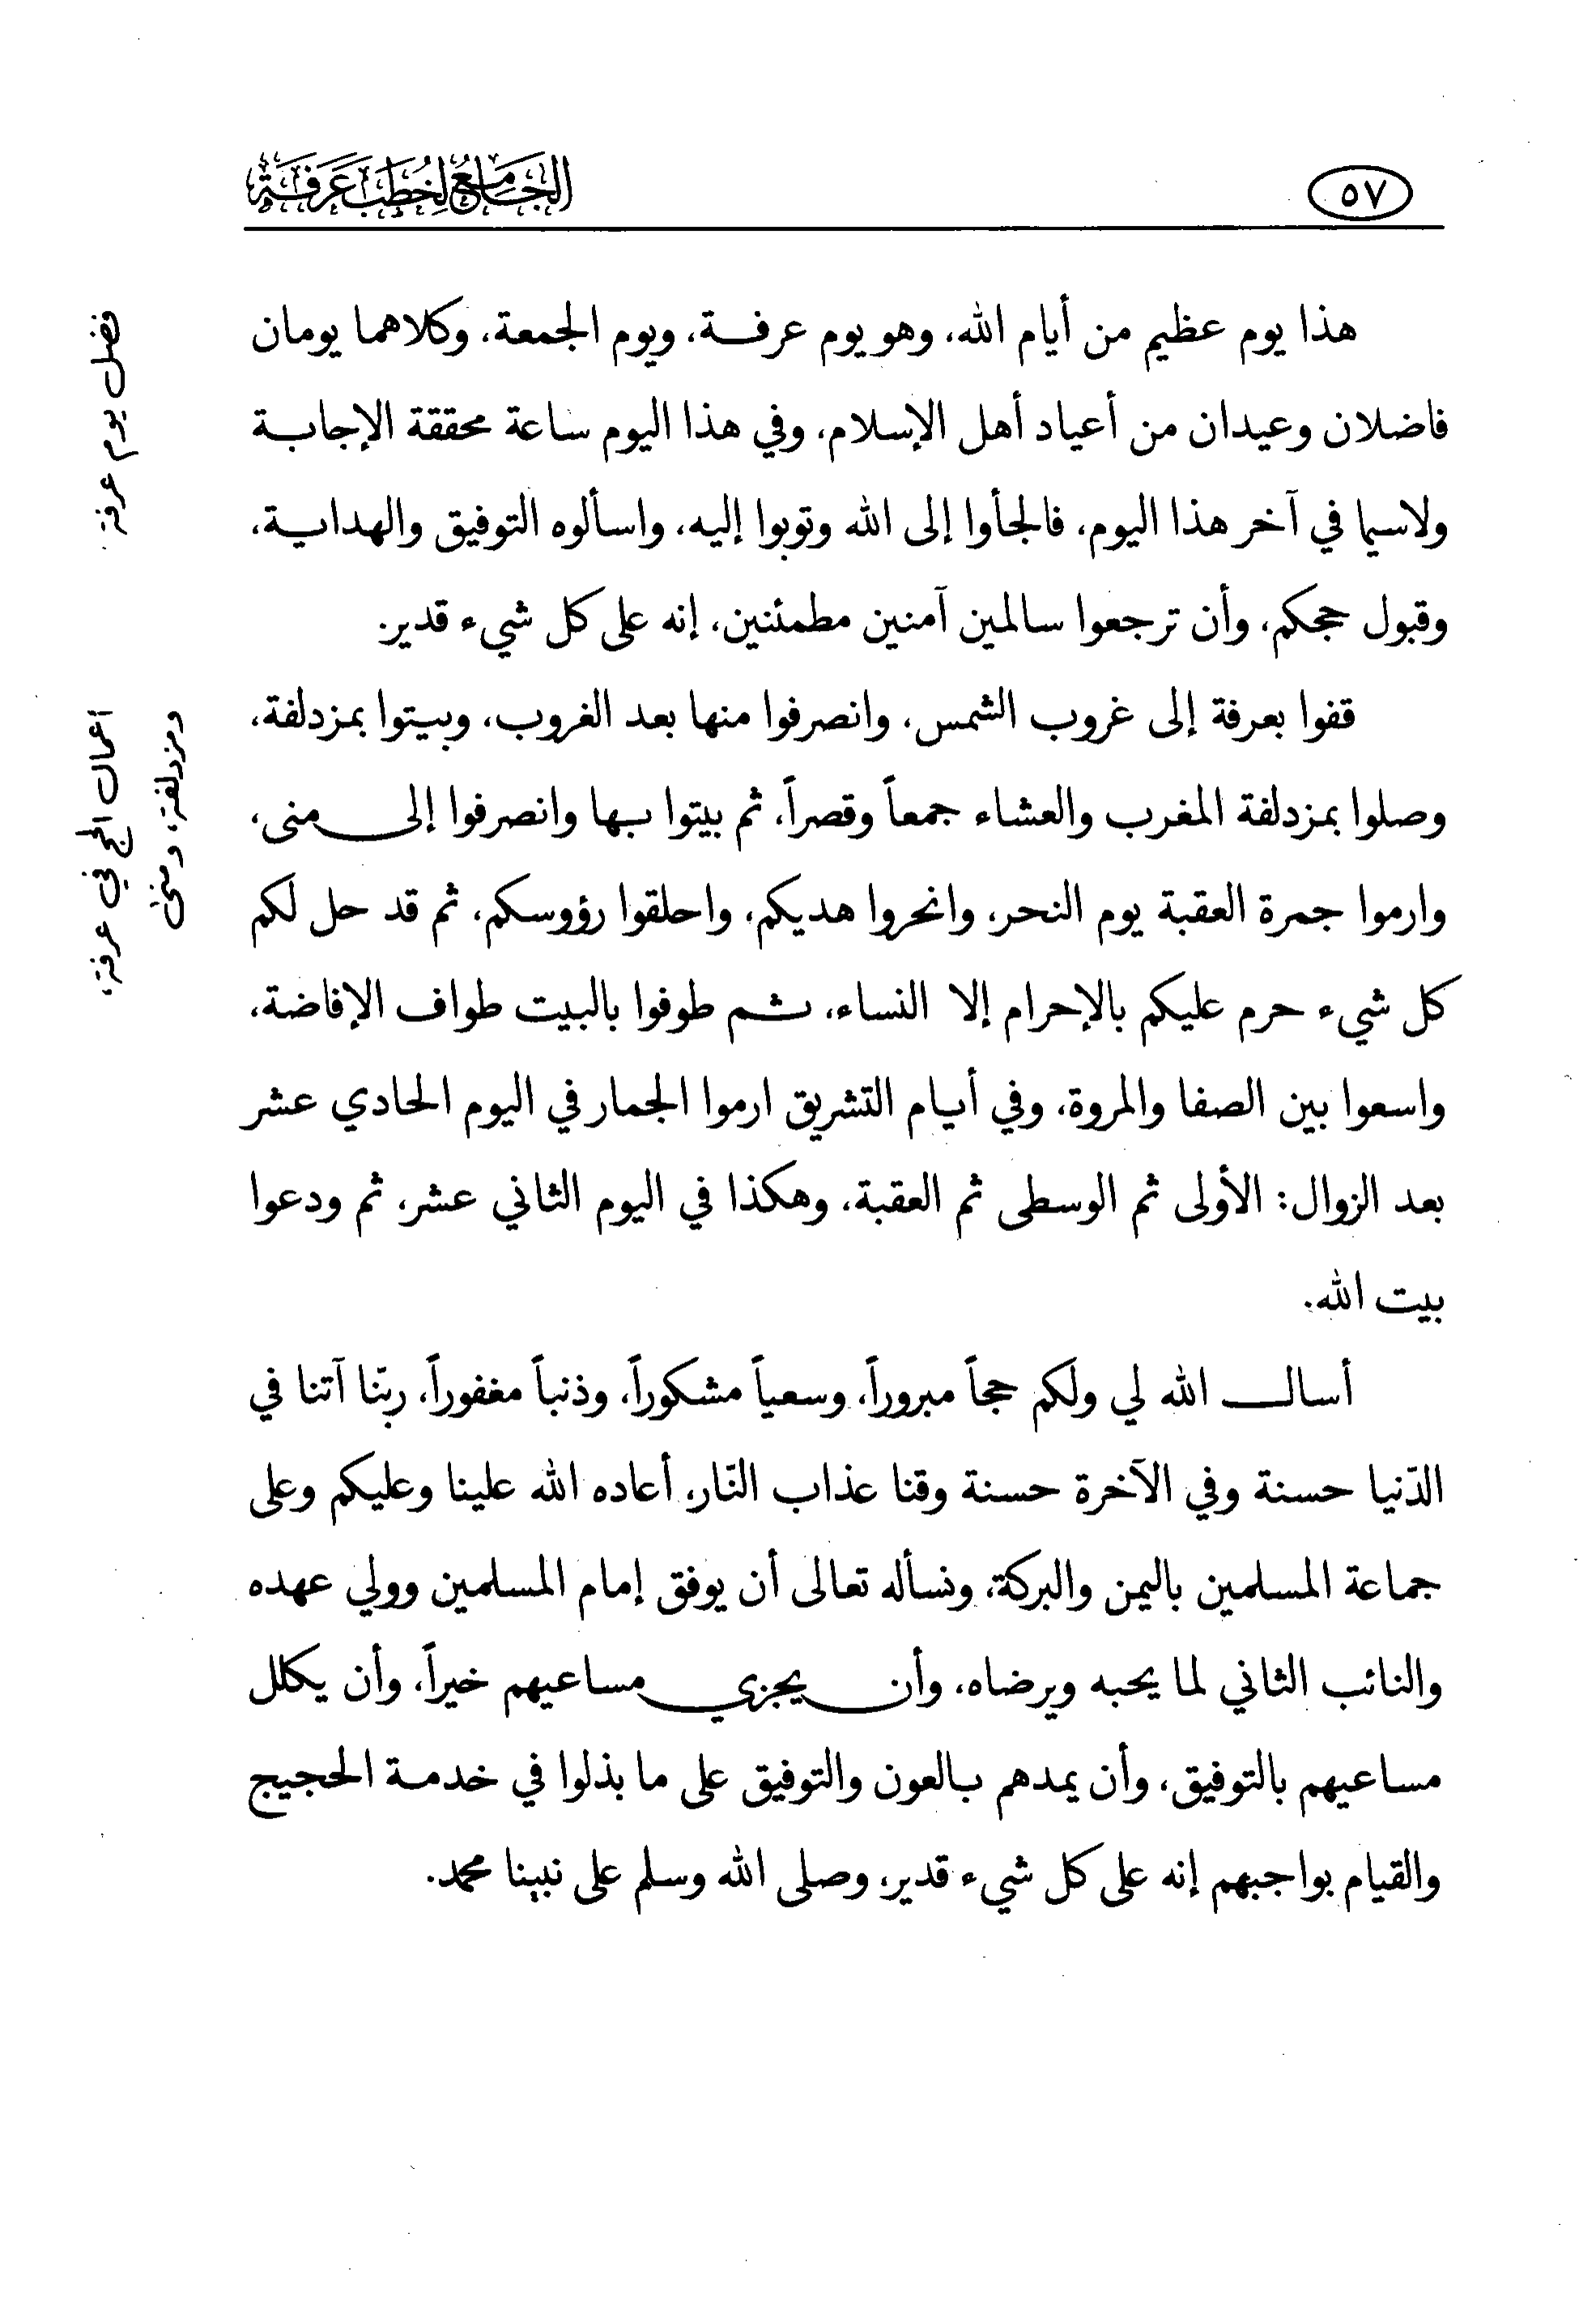 ٥٧
الجامع لخطب عرفة
هذا يوم عظيم من أيام الله، وهو يوم عرفة، ويوم الجمعة، وكلاهما يومان
فاضلان وعيدان من أعياد أهل الإسلام، وفي هذا اليوم ساعة محققة الإجابة
ولاسيما في آخر هذا اليوم، فالجأوا إلى الله وتوبوا إليه، واسألوه التوفيق والهداية،
وقبول حجكم، وأن ترجعوا سالمين آمنين مطمئنين، إنه على كل شيء قدير.
فضل يوم عرفة
قفوا بعرفة إلى غروب الشمس، وانصرفوا منها بعد الغروب، وبيتوا بمزدلفة،
وصلوا بمزدلفة المغرب والعشاء جمعاً وقصراً، ثم بيتوا بها وانصرفوا إلى منى،
وارموا جمرة العقبة يوم النحر، وانحروا هديكم، واحلقوا رؤوسكم، ثم قد حل لكم
كل شيء حرم عليكم بالإحرام إلا النساء، ثم طوفوا بالبيت طواف الإفاضة،
واسعوا بين الصفا والمروة، وفي أيام التشريق ارموا الجمار في اليوم الحادي عشر
بعد الزوال: الأولى ثم الوسطى ثم العقبة، وهكذا في اليوم الثاني عشر، ثم ودعوا
بيت الله.
أعمال الحج في عرفة،
ومزدلفة، ومنى
أسال الله لي ولكم حجاً مبروراً، وسعياً مشكوراً، وذنباً مغفوراً، ربّنا آتنا في
الدّنيا حسنة وفي الآخرة حسنة وقنا عذاب النّار، أعاده الله علينا وعليكم وعلى
جماعة المسلمين باليمن والبركة، ونسأله تعالى أن يوفق إمام المسلمين وولي عهده
والنائب الثاني لما يحبه ويرضاه، وأن يجزي مساعيهم خيراً، وأن يكلل
مساعيهم بالتوفيق، وأن يمدهم بالعون والتوفيق على ما بذلوا في خدمة الحجيج
والقيام بواجبهم إنه على كل شيء قدير، وصلى الله وسلم على نبينا محمد.